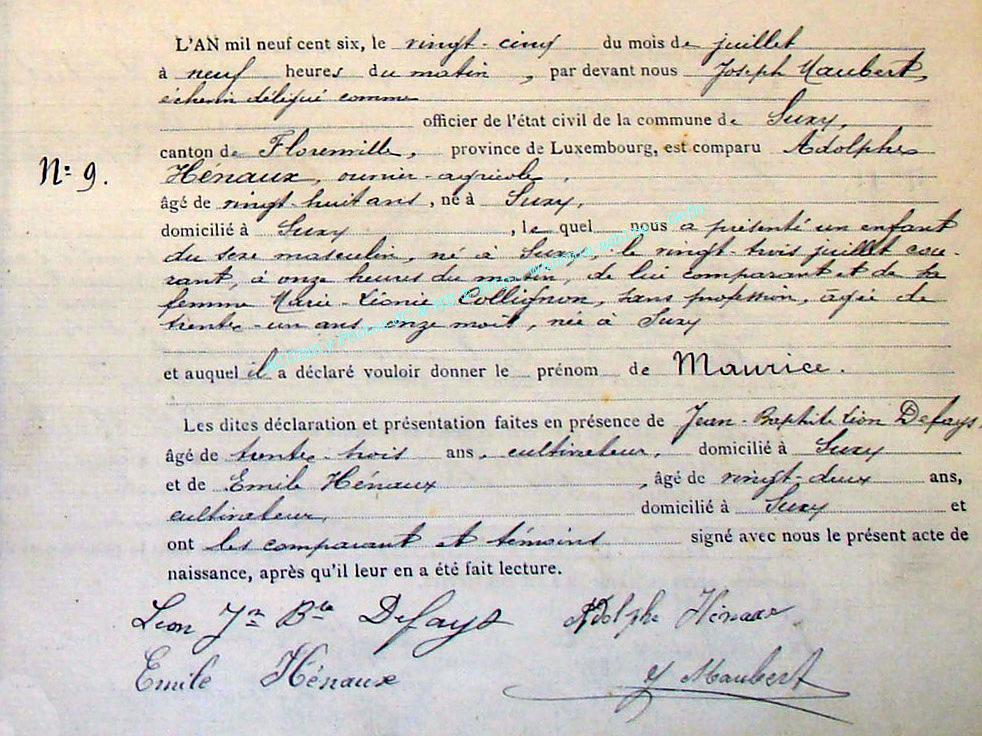 L'AN mil neuf cent six, le vingt-cinq du mois de juillet
à neuf heures du matin, par devant nous Joseph Maubert,
échevin délégué comme
officier de l'état civil de la commune de Suxy,
canton de Florenville, province de Luxembourg, est comparu Adolphe
N° 9.
Hénaux, ouvrier-agricole,
âgé de vingt-huit ans, né à Suxy,
domicilié à Suxy, lequel nous a présenté un enfant
du sexe masculin, né à Suxy, le vingt-trois juillet cou-
rant, à onze heures du matin, de lui comparant et de sa
femme Marie-Léonie Collignon, sans profession, âgée de
trente-un ans onze mois, née à Suxy
et auquel il a déclaré vouloir donner le prénom de Maurice.
Les dites déclaration et présentation faites en présence de Jean-Baptiste Léon Defays,
âgé de trente-trois ans, cultivateur, domicilié à Suxy
et de Emile Hénaux, âgé de vingt-deux ans,
cultivateur, domicilié à Suxy et
ont les comparant et témoins signé avec nous le présent acte de
naissance, après qu'il leur en a été fait lecture.
Leon Jn Bte Defays Adolphe Hénaux
Emile Hénaux J Maubert